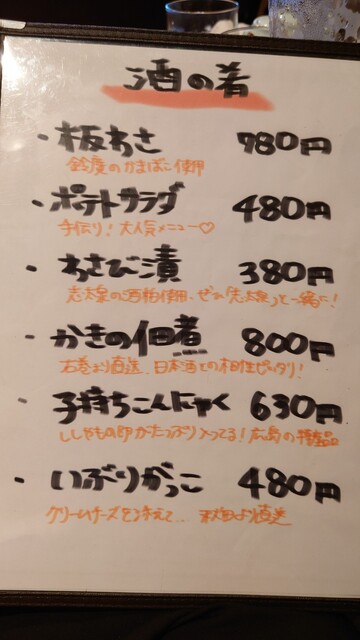 酒の肴
・板わさ 780円
鈴廣のかまぼこ使用
・ポテトサラダ 480円
手作り！大人気メニュー♡
・わさび漬 380円
志太泉の酒粕使用、ぜひ「志太泉」と一緒に！
・かきの佃煮 800円
石巻より直送、日本酒との相性ピッタリ！
・子持ちこんにゃく 630円
ししゃもの卵がたっぷり入ってる！広島の特産品
・いぶりがっこ 480円
クリームチーズを添えて、秋田より直送